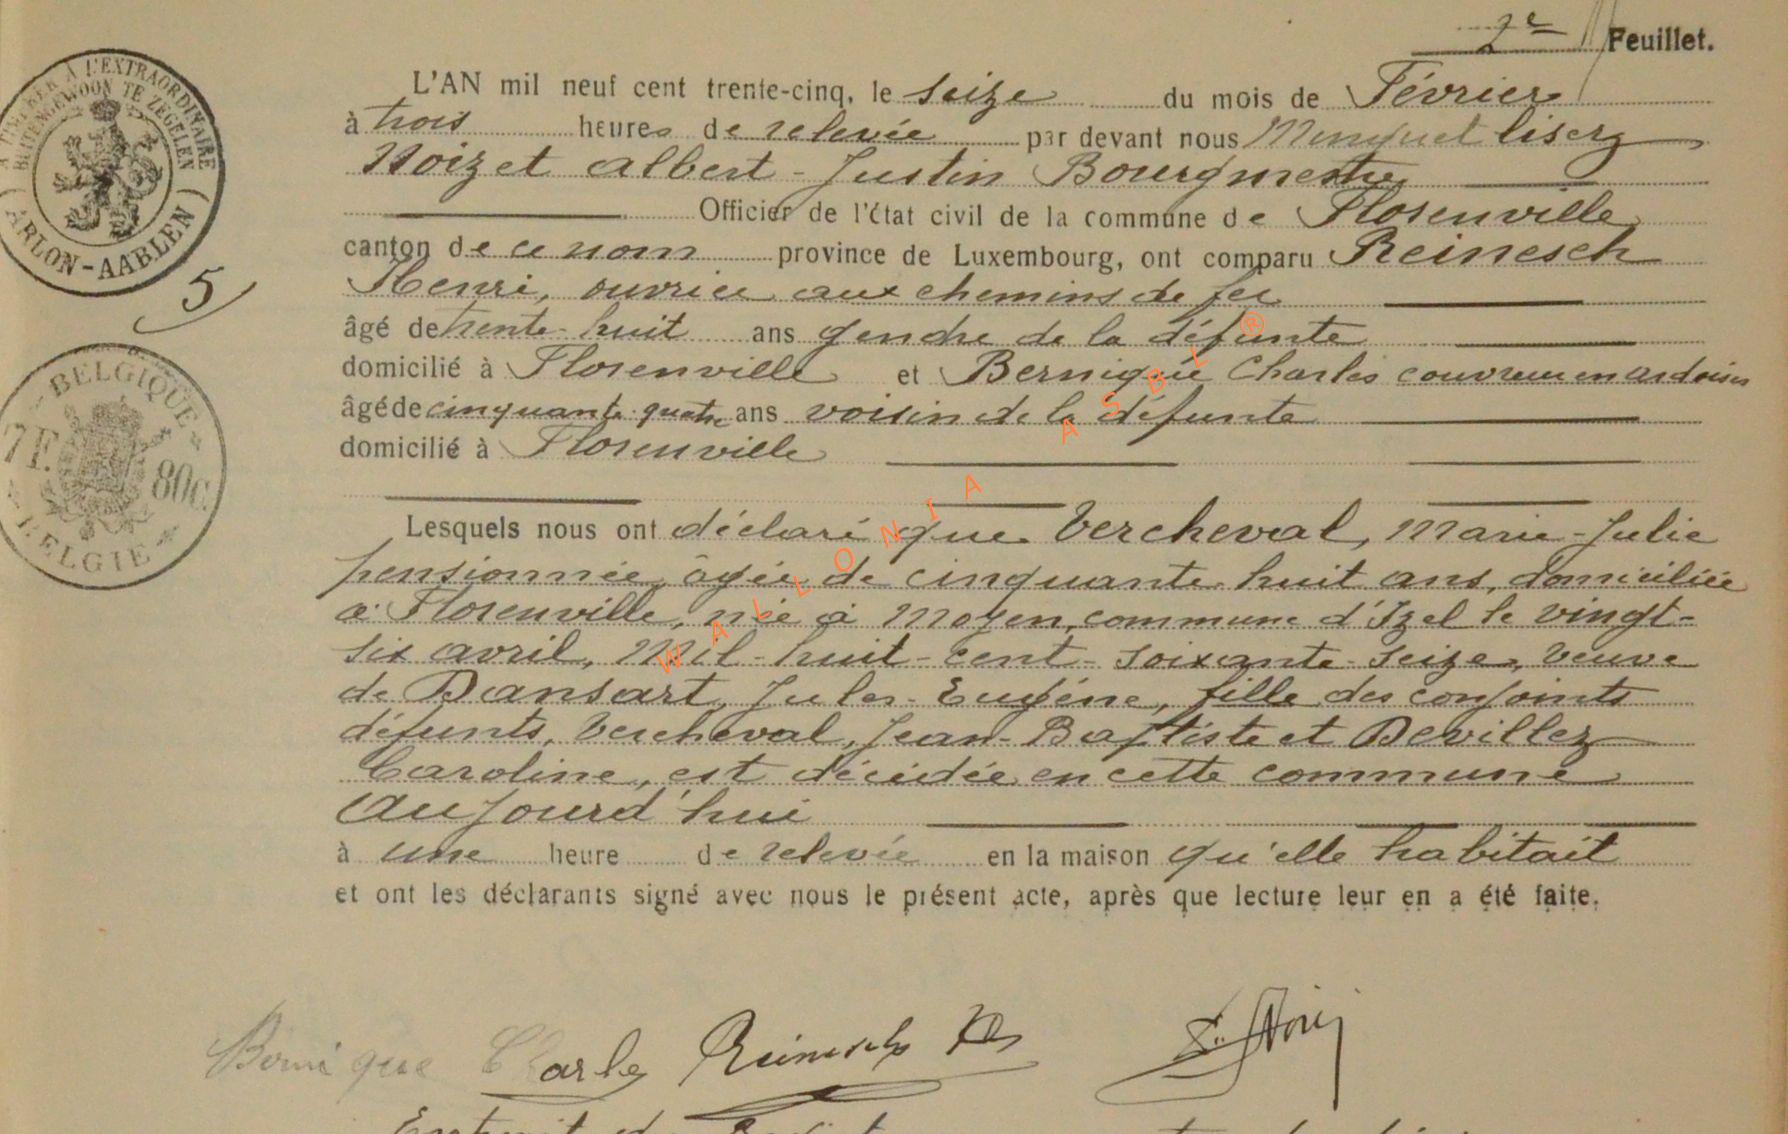 2e Feuillet.
TIMBRER À L'EXTRAORDINAIRE
BUITENGEWOON TE ZEGELEN
ARLON-AABLEN
5
BELGIQUE
7F. 80C.
BELGIE
L'AN mil neuf cent trente-cinq, le seize du mois de Février
à trois heures de relevée par devant nous
Noizet Albert-Justin Bourgmestre
Officier de l'état civil de la commune de Florenville
canton de ce nom province de Luxembourg, ont comparu Reinesch
Henri, ouvrier aux chemins de fer
âgé de trente-huit ans gendre de la défunte
domicilié à Florenville et Bernique Charles couvreur en ardoises
âgé de cinquante-quatre ans voisin de la défunte
domicilié à Florenville
Lesquels nous ont déclaré que Vercheval, Marie-Julie
pensionnée, âgée de cinquante-huit ans, domiciliée
à Florenville, née à Moyen, commune d'Izel le vingt-
six avril, Mil-huit-cent-soixante-seize, veuve
de Dansart, Jules-Eugène, fille des conjoints
défunts, Vercheval, Jean-Baptiste et Devillez
Caroline, est décédée en cette commune
aujourd'hui
à une heure de relevée en la maison qu'elle habitait
et ont les déclarants signé avec nous le présent acte, après que lecture leur en a été faite.
WALLONIA ASBL ®
Bernique Charles Reinesch